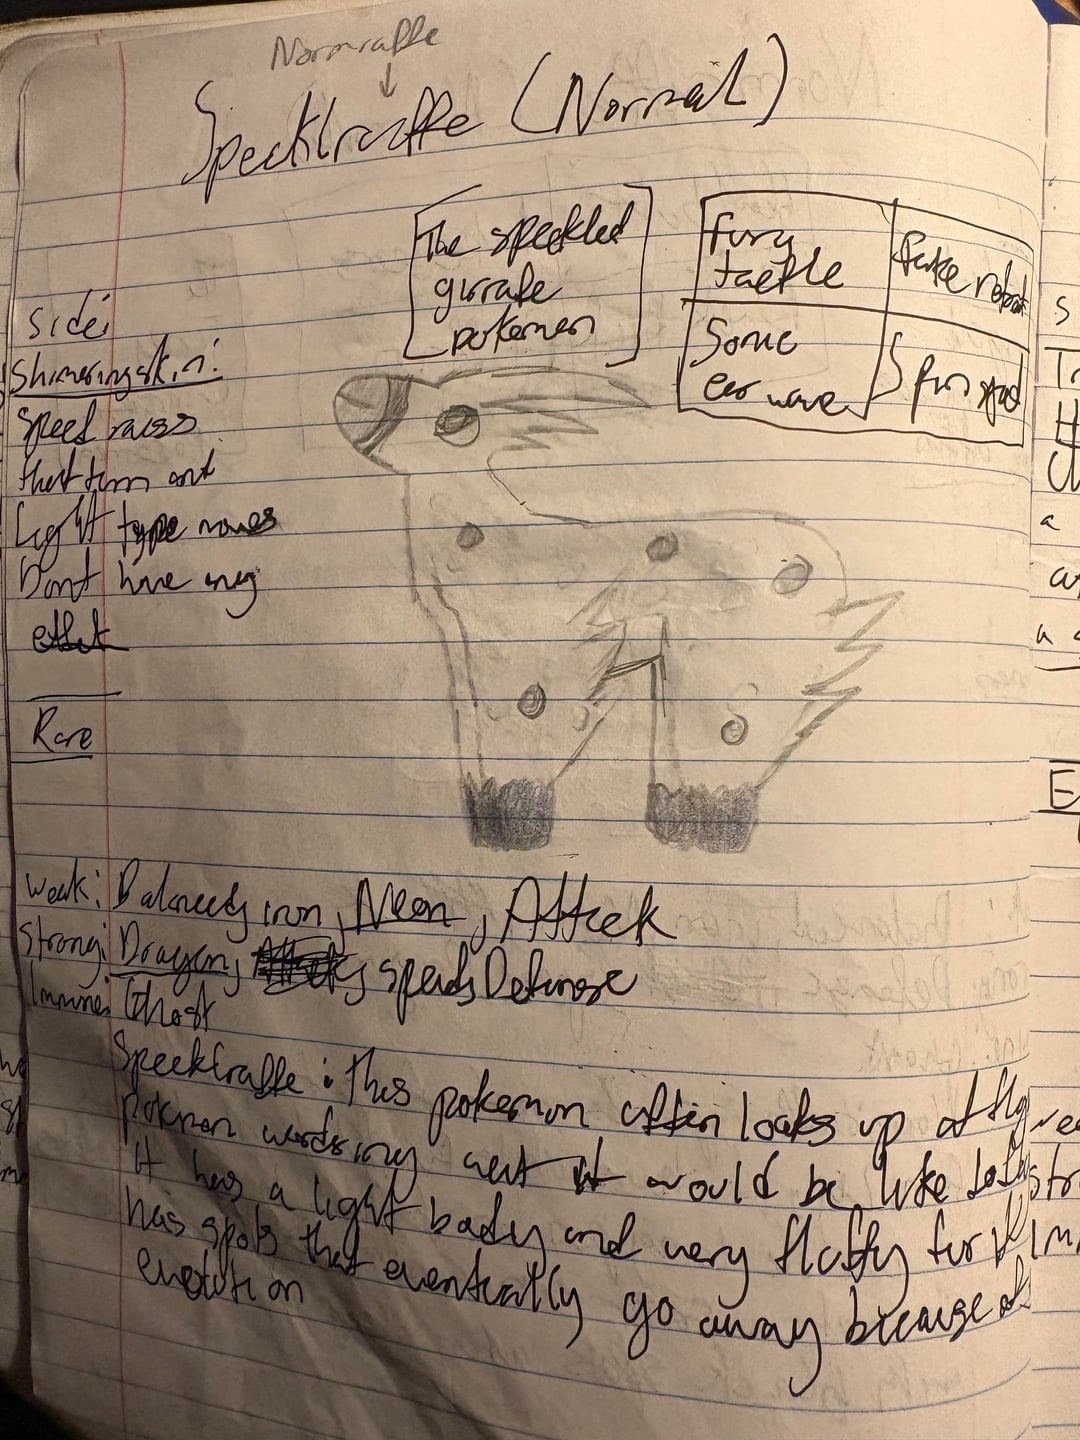 Normraffe
Specklraffe (Normal)
The speckled
girrafe
pokemon
fury
tackle
fake
Sonic
ear wave
Side:
Shimering skin:
Speed raises
that turn and
Light type moves
Dont have any
Rare
weak: Balanced, iron, Neon, Attack
Strong: Dragon, speed, Defense
Immune: Ghost
Specklraffe: this pokemon often looks up at
pokmon what it would be like to
It has a light body and very fluffy fur
has spots that eventually go away because of
evolution